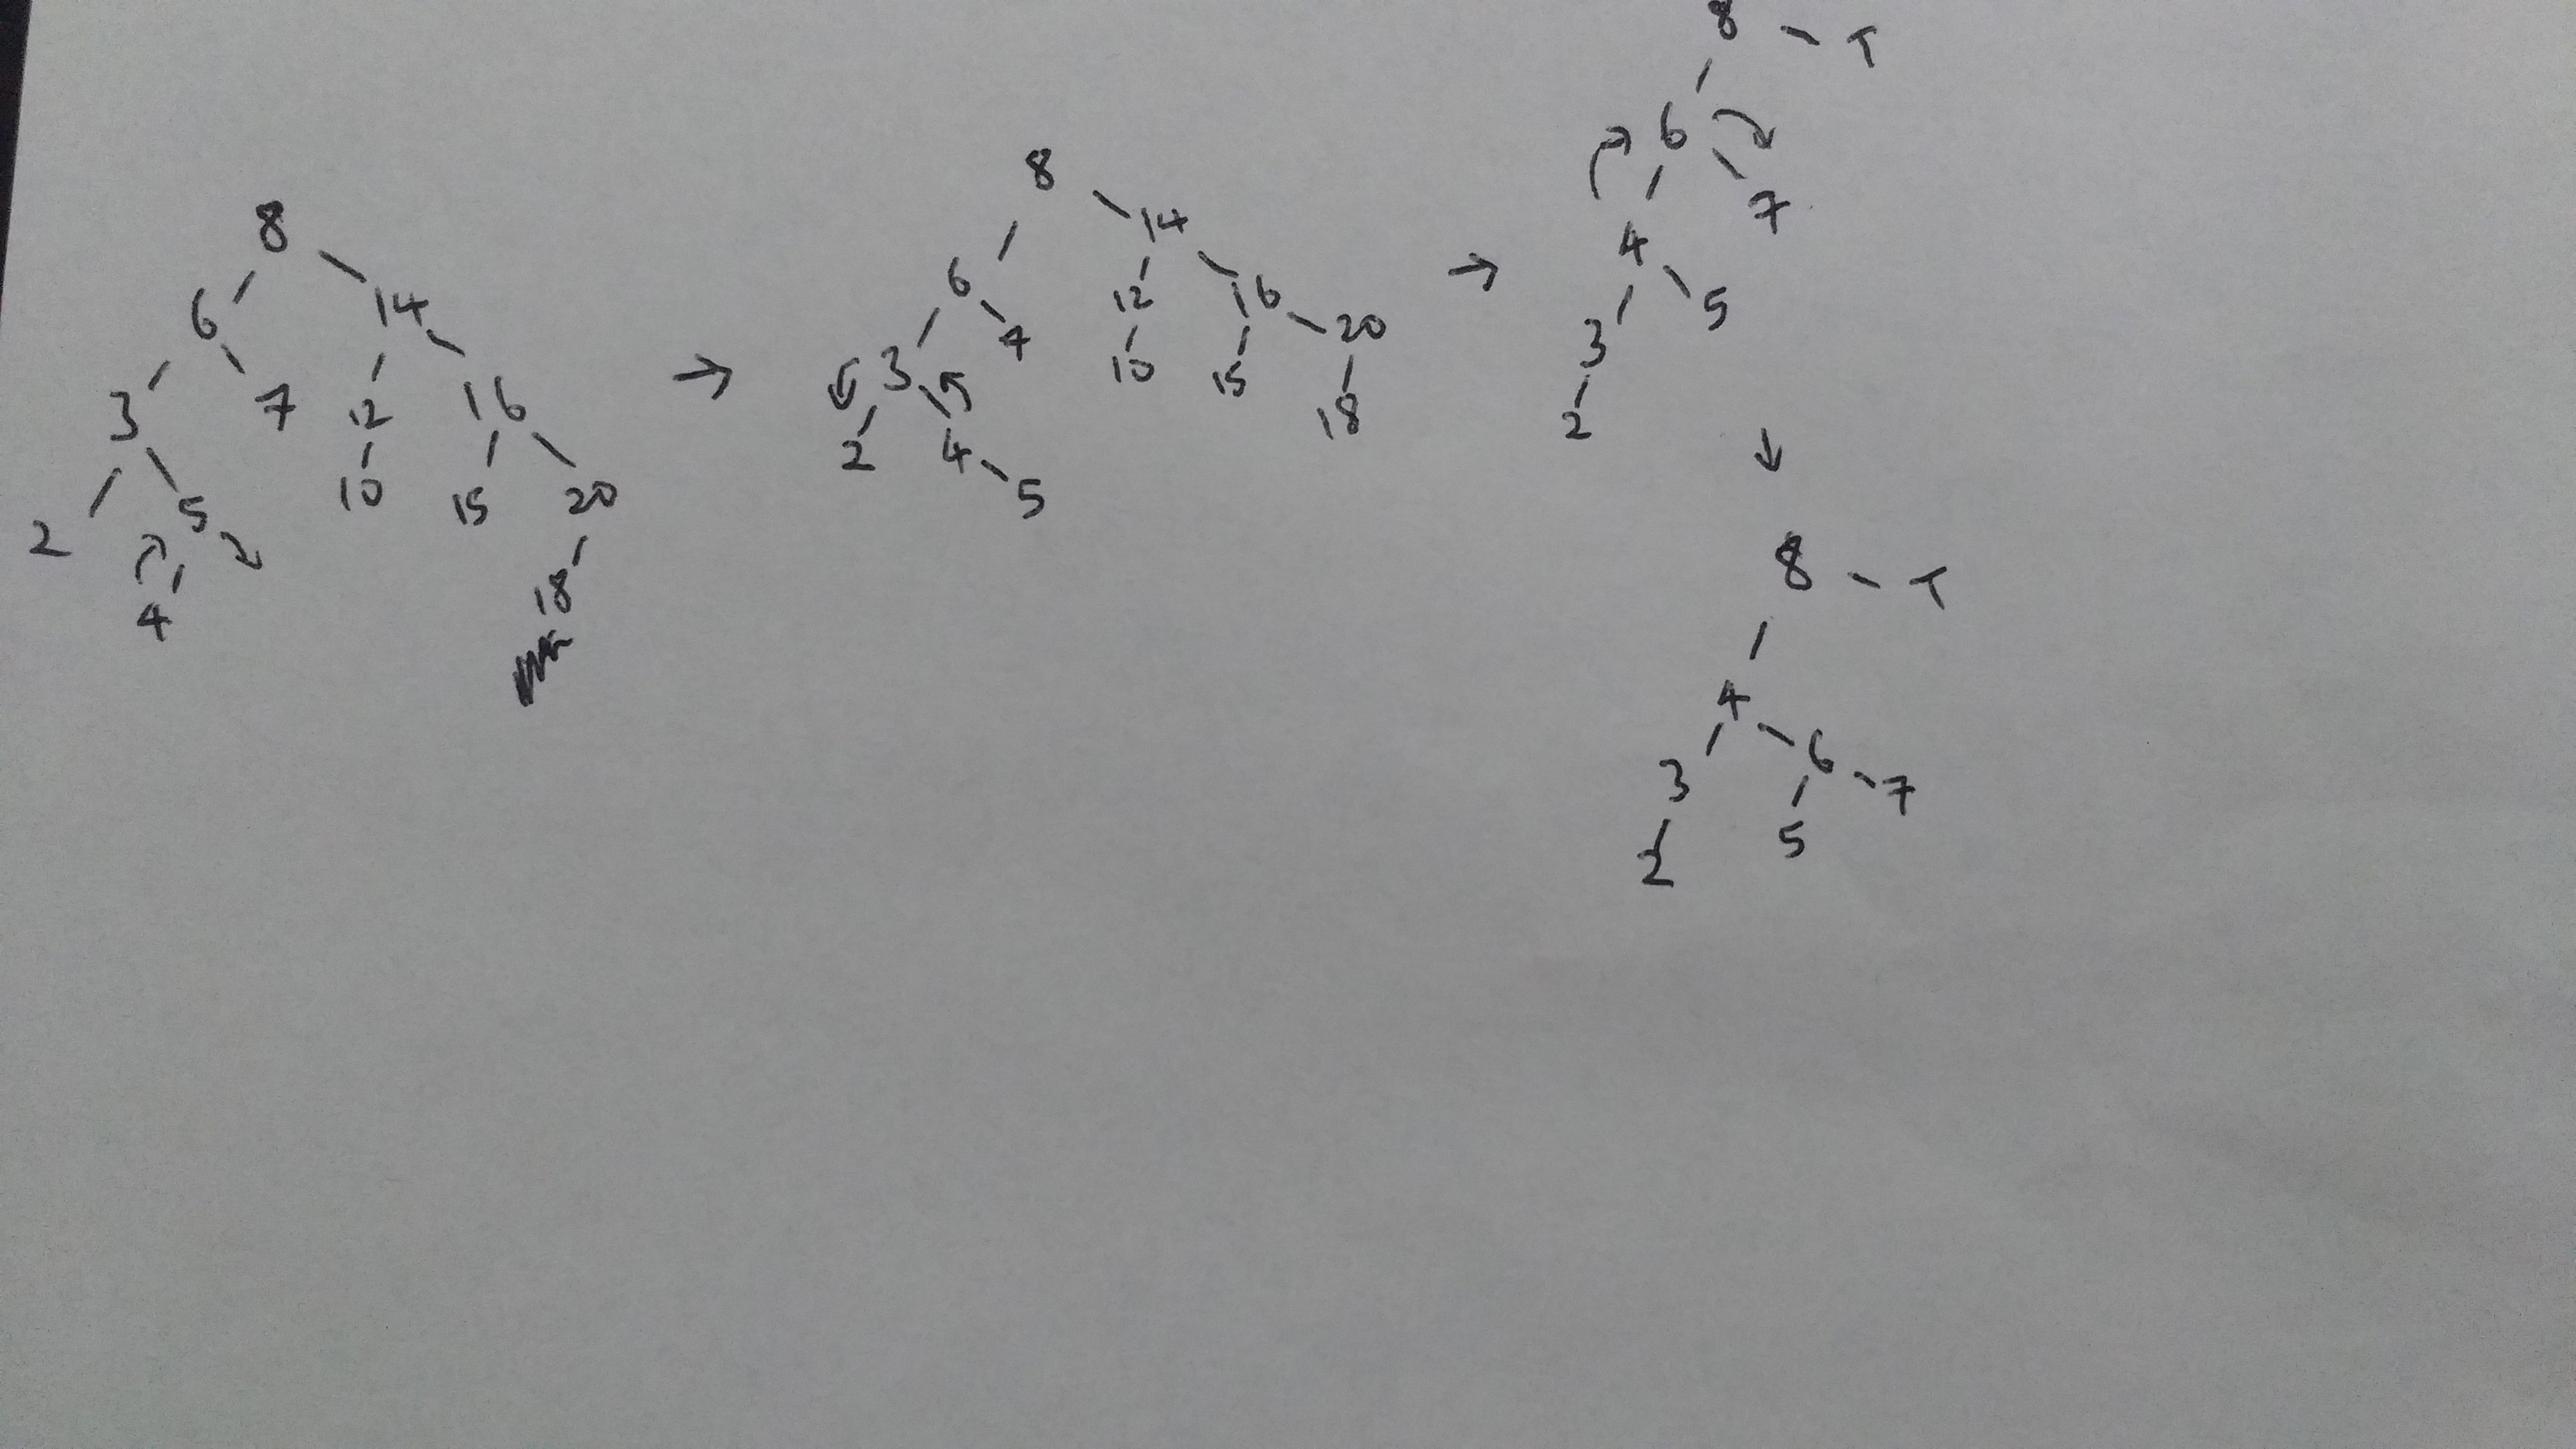 8
6 14
3 7 12 16
2 5 10 15 20
4 18
→
8
6 14
3 7 12 16
2 4 10 15 20
5 18
→
8 T
6
4 7
3 5
2
↓
8 T
4
3 6
2 5 7